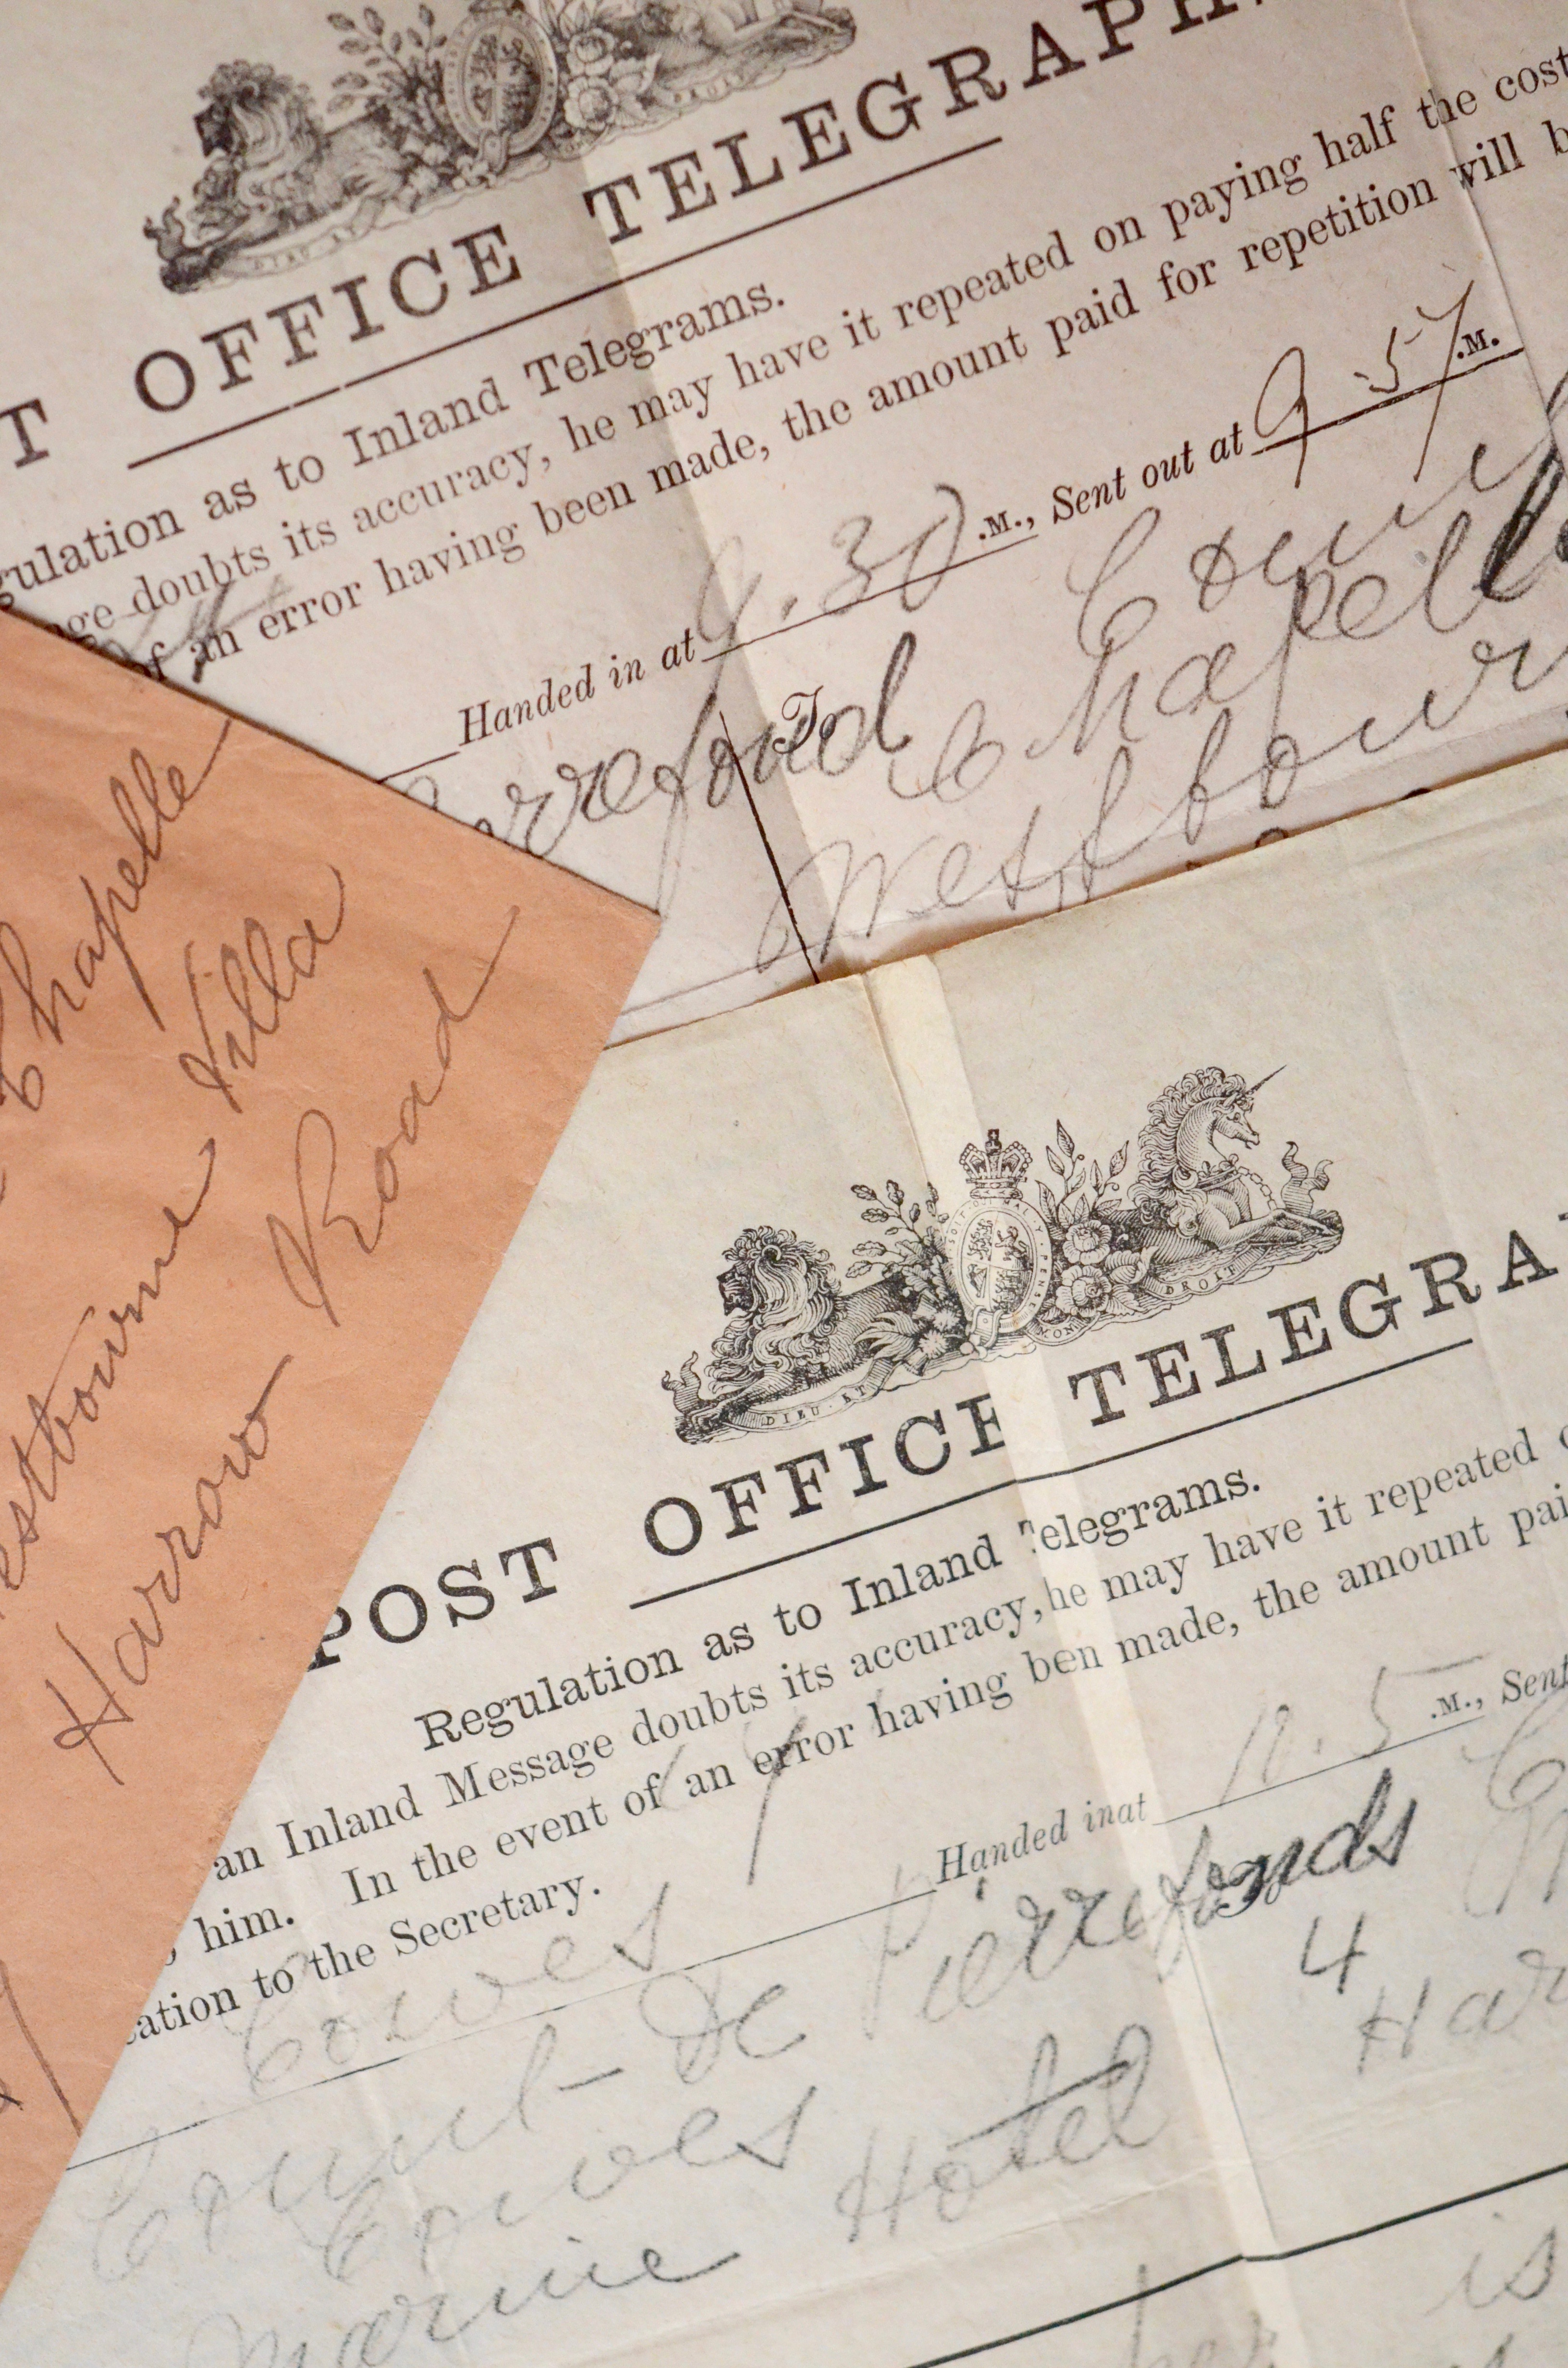 DIEU ET DROIT
T OFFICE TELEGRAPH
gulation as to Inland Telegrams.
ge doubts its accuracy, he may have it repeated on paying half the cost
of an error having been made, the amount paid for repetition will b
Handed in at 9.30 .M., Sent out at 9.57 .M.
To
Chapelle
Westbour
Chapelle
estbourne Villa
Harrow Road
DIEU ET MON DROIT
POST OFFICE TELEGRA
Regulation as to Inland Telegrams.
an Inland Message doubts its accuracy, he may have it repeated o
him. In the event of an error having ben made, the amount pai
cation to the Secretary.
Handed inat 11.5 .M., Sent
Cowes
Count De Pierrefonds
4
Har
Cowes
Marine Hotel
is
her